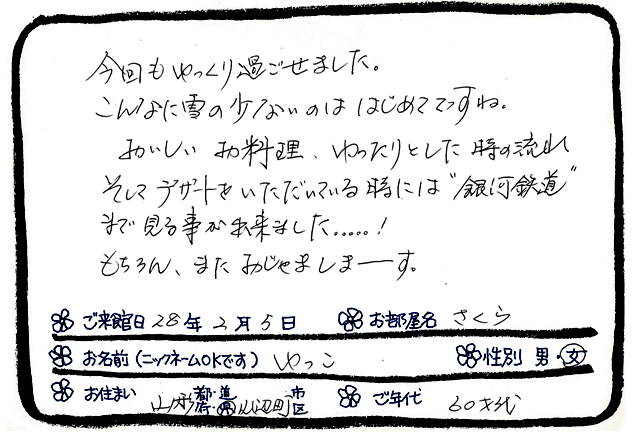 今回もゆっくり過ごせました。
こんなに雪の少ないのは はじめてですね。
おいしい お料理、ゆったりとした 時の流れ
そして デザートをいただいている時には“銀河鉄道”
まで見る事が出来ました.....!
もちろん、また おじゃましまーす。
ご来館日 28年 2月 5日 お部屋名 さくら
お名前(ニックネームOKです) ゆっこ 性別 男・女
お住まい 山形 都・道 府・県 山辺町 市 区 ご年代 60才代